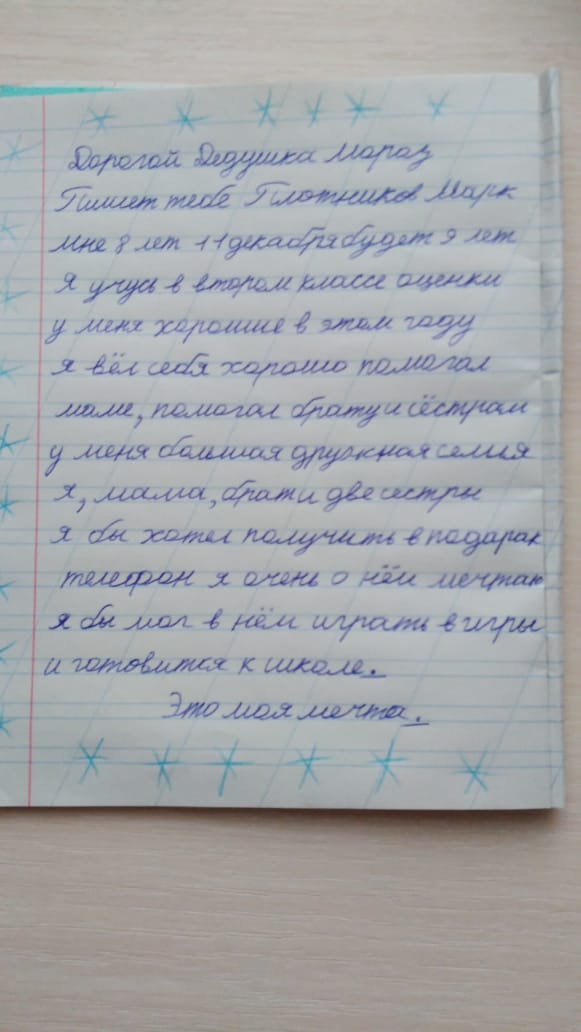 Дорогой Дедушка Мароз
Пишет тебе Плотников Марк
мне 8 лет 11 декабря будет 9 лет
я учусь в втором классе оценки
у меня хорошие в этом году
я вёл себя хорошо помогал
маме, помогал брату и сёстрам
у меня большая дружная семья
я, мама, брат и две сестры
я бы хотел получить в падарак
телефон я очень о нём мечтаю
я бы мог в нём играть в игры
и готовится к школе.
Это моя мечта.